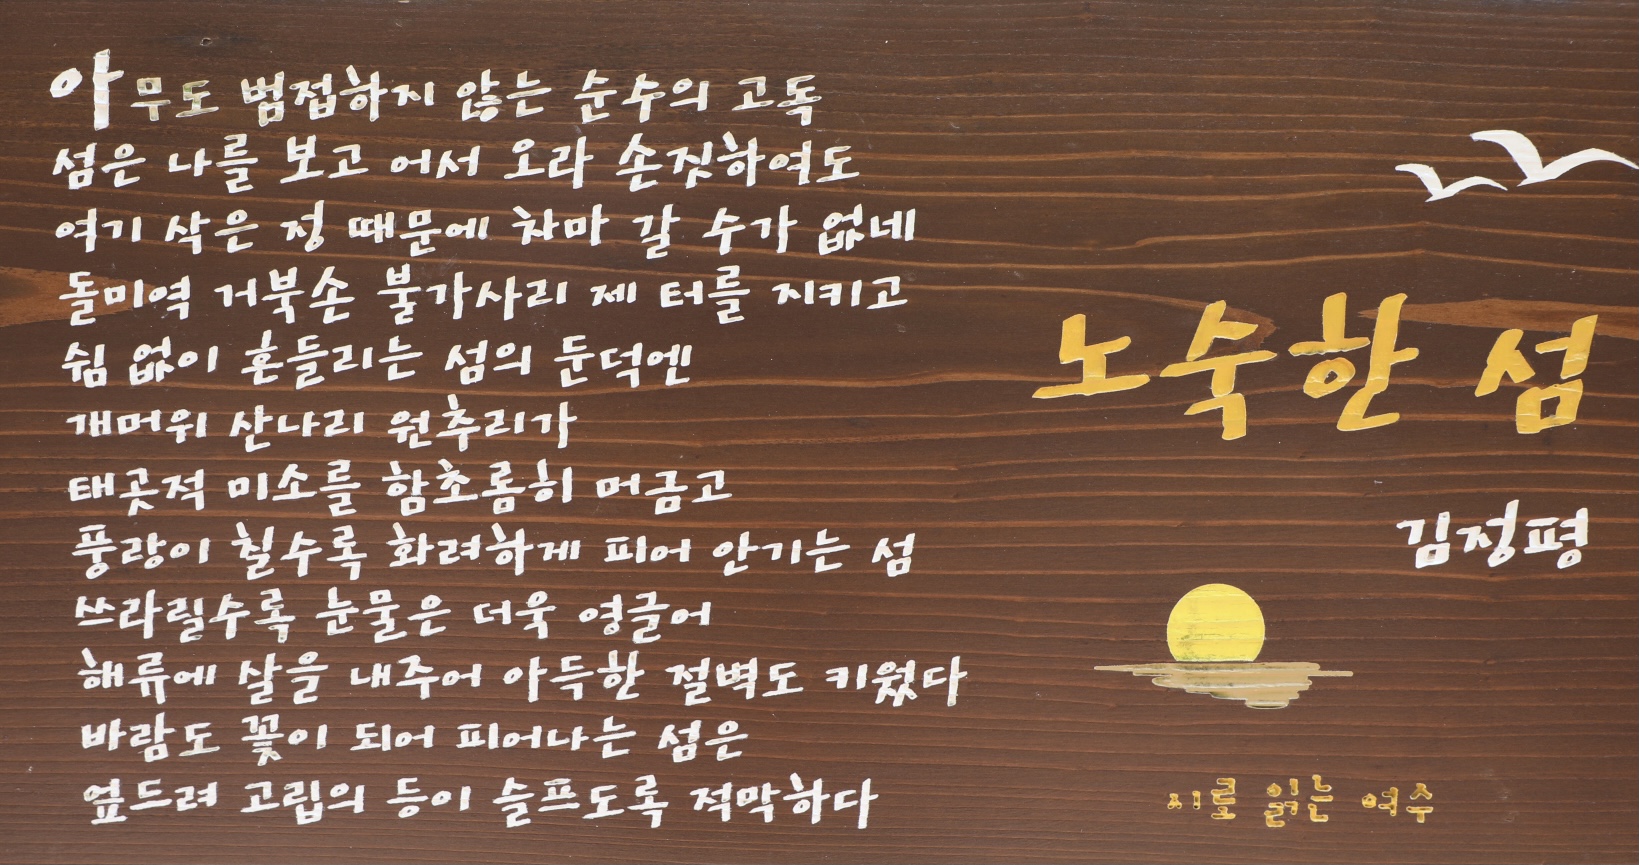 아무도 범접하지 않는 순수의 고독
섬은 나를 보고 어서 오라 손짓하여도
여기 삭은 정 때문에 차마 갈 수가 없네
돌미역 거북손 불가사리 제 터를 지키고
쉼 없이 흔들리는 섬의 둔덕엔
개머위 산나리 원추리가
태곳적 미소를 함초롬히 머금고
풍랑이 칠수록 화려하게 피어 안기는 섬
쓰라릴수록 눈물은 더욱 영글어
해류에 살을 내주어 아득한 절벽도 키웠다
바람도 꽃이 되어 피어나는 섬은
엎드려 고립의 등이 슬프도록 적막하다
노숙한 섬
김정평
시로 읽는 여수